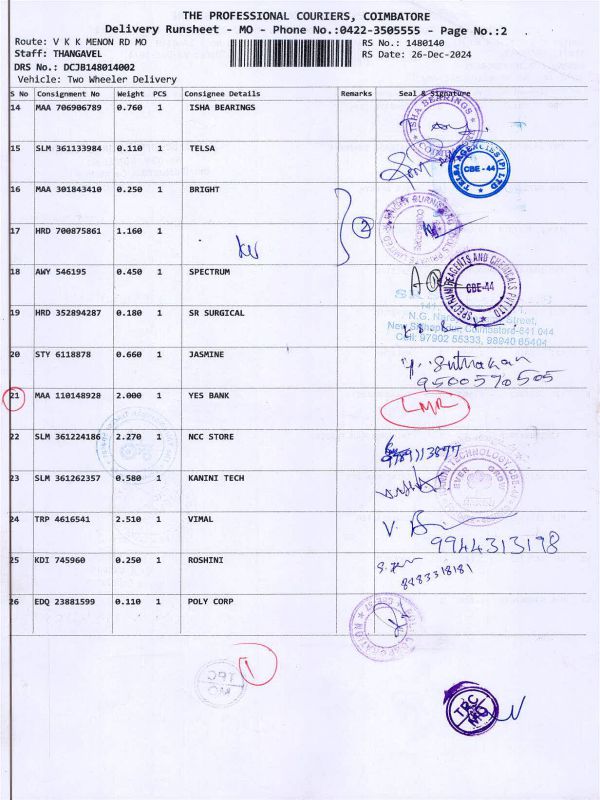 THE PROFESSIONAL COURIERS, COIMBATORE
Delivery Runsheet - MO - Phone No.:0422-3505555 - Page No.:2
Route: V K K MENON RD MO
RS No.: 1480140
Staff: THANGAVEL
RS Date: 26-Dec-2024
DRS No.: DCJB148014002
Vehicle: Two Wheeler Delivery
S No Consignment No Weight PCS Consignee Details Remarks Seal & Signature
14 MAA 706906789 0.760 1 ISHA BEARINGS
ISHA BEARINGS
15 SLM 361133984 0.110 1 TELSA
TELSA AGENCIES (P) LTD
CBE - 44
16 MAA 301843410 0.250 1 BRIGHT
2
17 HRD 700875861 1.160 1
18 AWY 546195 0.450 1 SPECTRUM
SPECTRUM REAGENTS AND CHEMICALS PVT LTD
CBE-44
19 HRD 352894287 0.180 1 SR SURGICAL
Coimbatore-641 044
Cell: 97902 55333, 98940 65404
20 STY 6118878 0.660 1 JASMINE
9500570505
21 MAA 110148928 2.000 1 YES BANK
LMR
22 SLM 361224186 2.270 1 NCC STORE
9789113877
23 SLM 361262357 0.580 1 KANINI TECH
24 TRP 4616541 2.510 1 VIMAL
9944313198
25 KDI 745960 0.250 1 ROSHINI
8283318181
26 EDQ 23881599 0.110 1 POLY CORP
1
TBC
MO
TRC
MO